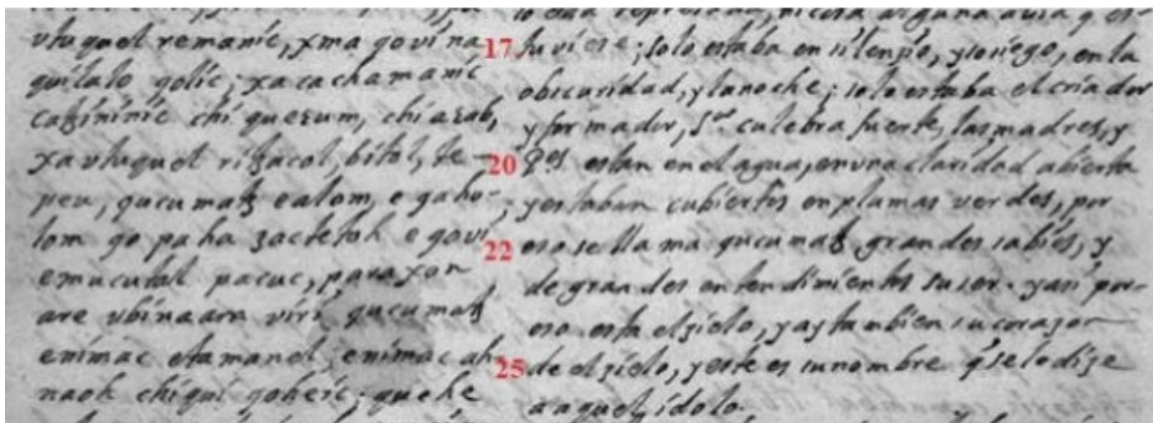 vtuquel remanic, xma qo vi na
quilalo qolic; xa ca chamanic
catzininic chi quecum, chi aɛab,
xa vtuquel ri tzacol, bitol, te-
peu, qucumatz ealom, e qaho-
lom qo pa ha zactetoh e qo vi,
emucutal pa cuc, pa raxon
are vbinaam vi ri qucumatz
enimac etamanel, enimac ah
naoh chi qui qoheic; quehe
17 tuviese; solo estaba en silenzio, y sosiego, en la
obscuridad, y la noche; solo estaba el criador
y formador, Sor. culebra fuerte, las madres, y
20 Pes. estan en el agua, en una claridad abierta
y estaban cubiertos en plumas verdes, por
22 eso se llama qucumatz, grandes sabios, y
de grandes entendimientos su ser. y asi por-
eso esta el zielo, y ay tambien su corazon
25 de el zielo, y este es su nombre q̃ se le dize
a aquel idolo.